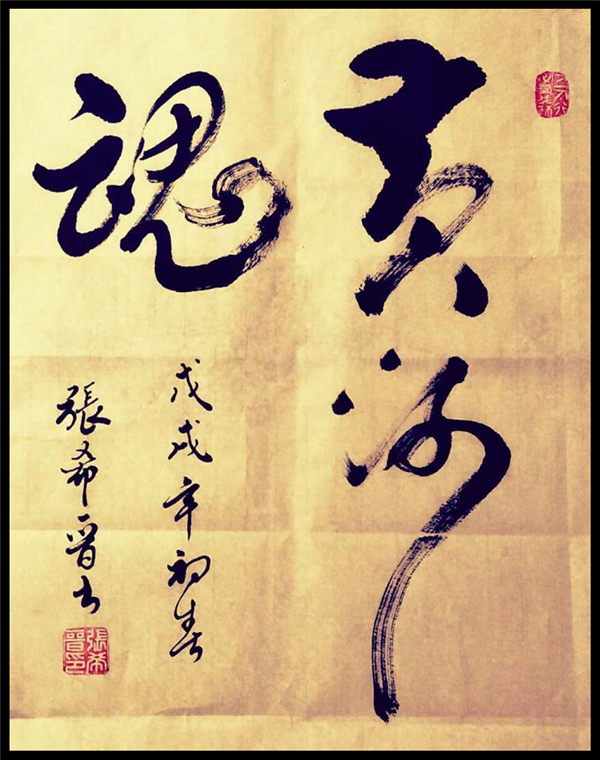 黄河
魂
戊戌年初春
張希晋书
張希晋印